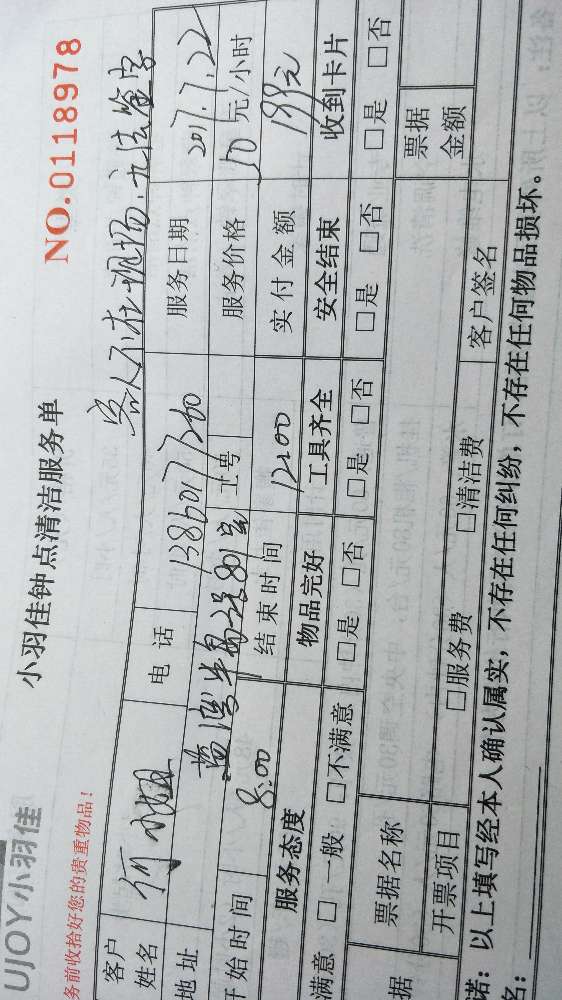 UJOY小羽佳
小羽佳钟点清洁服务单
NO.0118978
务前收拾好您的贵重物品!
客人不在现场,无法签字
客户姓名 何 电话 服务日期 2017.7.22
地址 工号 服务价格 50元/小时
开始时间 8:00 结束时间 12:00 实付金额 199元
服务态度 物品完好 工具齐全 安全结束 收到卡片
满意 □一般 □不满意 □是 □否 □是 □否 □是 □否 □是 □否
据 票据名称 票据金额
开票项目 □服务费 □清洁费 客户签名
诺:以上填写经本人确认属实,不存在任何纠纷,不存在任何物品损坏。
名: